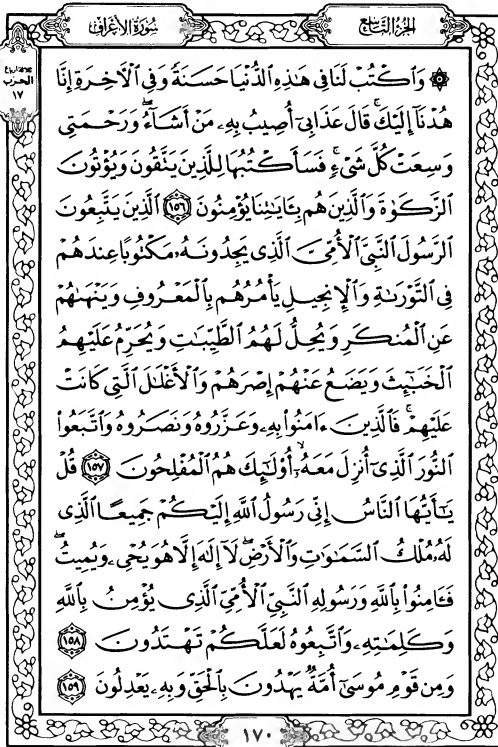 سُورَةُ الأَعْرَافِ
الجُزْءُ التَّاسِعُ
الحزب
١٧
۞ وَٱكْتُبْ لَنَا فِى هَٰذِهِ ٱلدُّنْيَا حَسَنَةً وَفِى ٱلْءَاخِرَةِ إِنَّا
هُدْنَآ إِلَيْكَ ۚ قَالَ عَذَابِىٓ أُصِيبُ بِهِۦ مَنْ أَشَآءُ ۖ وَرَحْمَتِى
وَسِعَتْ كُلَّ شَىْءٍ ۚ فَسَأَكْتُبُهَا لِلَّذِينَ يَتَّقُونَ وَيُؤْتُونَ
ٱلزَّكَوٰةَ وَٱلَّذِينَ هُم بِـَٔايَٰتِنَا يُؤْمِنُونَ ١٥٦ ٱلَّذِينَ يَتَّبِعُونَ
ٱلرَّسُولَ ٱلنَّبِىَّ ٱلْأُمِّىَّ ٱلَّذِى يَجِدُونَهُۥ مَكْتُوبًا عِندَهُمْ
فِى ٱلتَّوْرَىٰةِ وَٱلْإِنجِيلِ يَأْمُرُهُم بِٱلْمَعْرُوفِ وَيَنْهَىٰهُمْ
عَنِ ٱلْمُنكَرِ وَيُحِلُّ لَهُمُ ٱلطَّيِّبَٰتِ وَيُحَرِّمُ عَلَيْهِمُ
ٱلْخَبَٰٓئِثَ وَيَضَعُ عَنْهُمْ إِصْرَهُمْ وَٱلْأَغْلَٰلَ ٱلَّتِى كَانَتْ
عَلَيْهِمْ ۚ فَٱلَّذِينَ ءَامَنُوا۟ بِهِۦ وَعَزَّرُوهُ وَنَصَرُوهُ وَٱتَّبَعُوا۟
ٱلنُّورَ ٱلَّذِىٓ أُنزِلَ مَعَهُۥٓ ۙ أُو۟لَٰٓئِكَ هُمُ ٱلْمُفْلِحُونَ ١٥٧ قُلْ
يَٰٓأَيُّهَا ٱلنَّاسُ إِنِّى رَسُولُ ٱللَّهِ إِلَيْكُمْ جَمِيعًا ٱلَّذِى
لَهُۥ مُلْكُ ٱلسَّمَٰوَٰتِ وَٱلْأَرْضِ ۖ لَآ إِلَٰهَ إِلَّا هُوَ يُحْىِۦ وَيُمِيتُ ۖ
فَـَٔامِنُوا۟ بِٱللَّهِ وَرَسُولِهِ ٱلنَّبِىِّ ٱلْأُمِّىِّ ٱلَّذِى يُؤْمِنُ بِٱللَّهِ
وَكَلِمَٰتِهِۦ وَٱتَّبِعُوهُ لَعَلَّكُمْ تَهْتَدُونَ ١٥٨
وَمِن قَوْمِ مُوسَىٰٓ أُمَّةٌ يَهْدُونَ بِٱلْحَقِّ وَبِهِۦ يَعْدِلُونَ ١٥٩
١٧٠